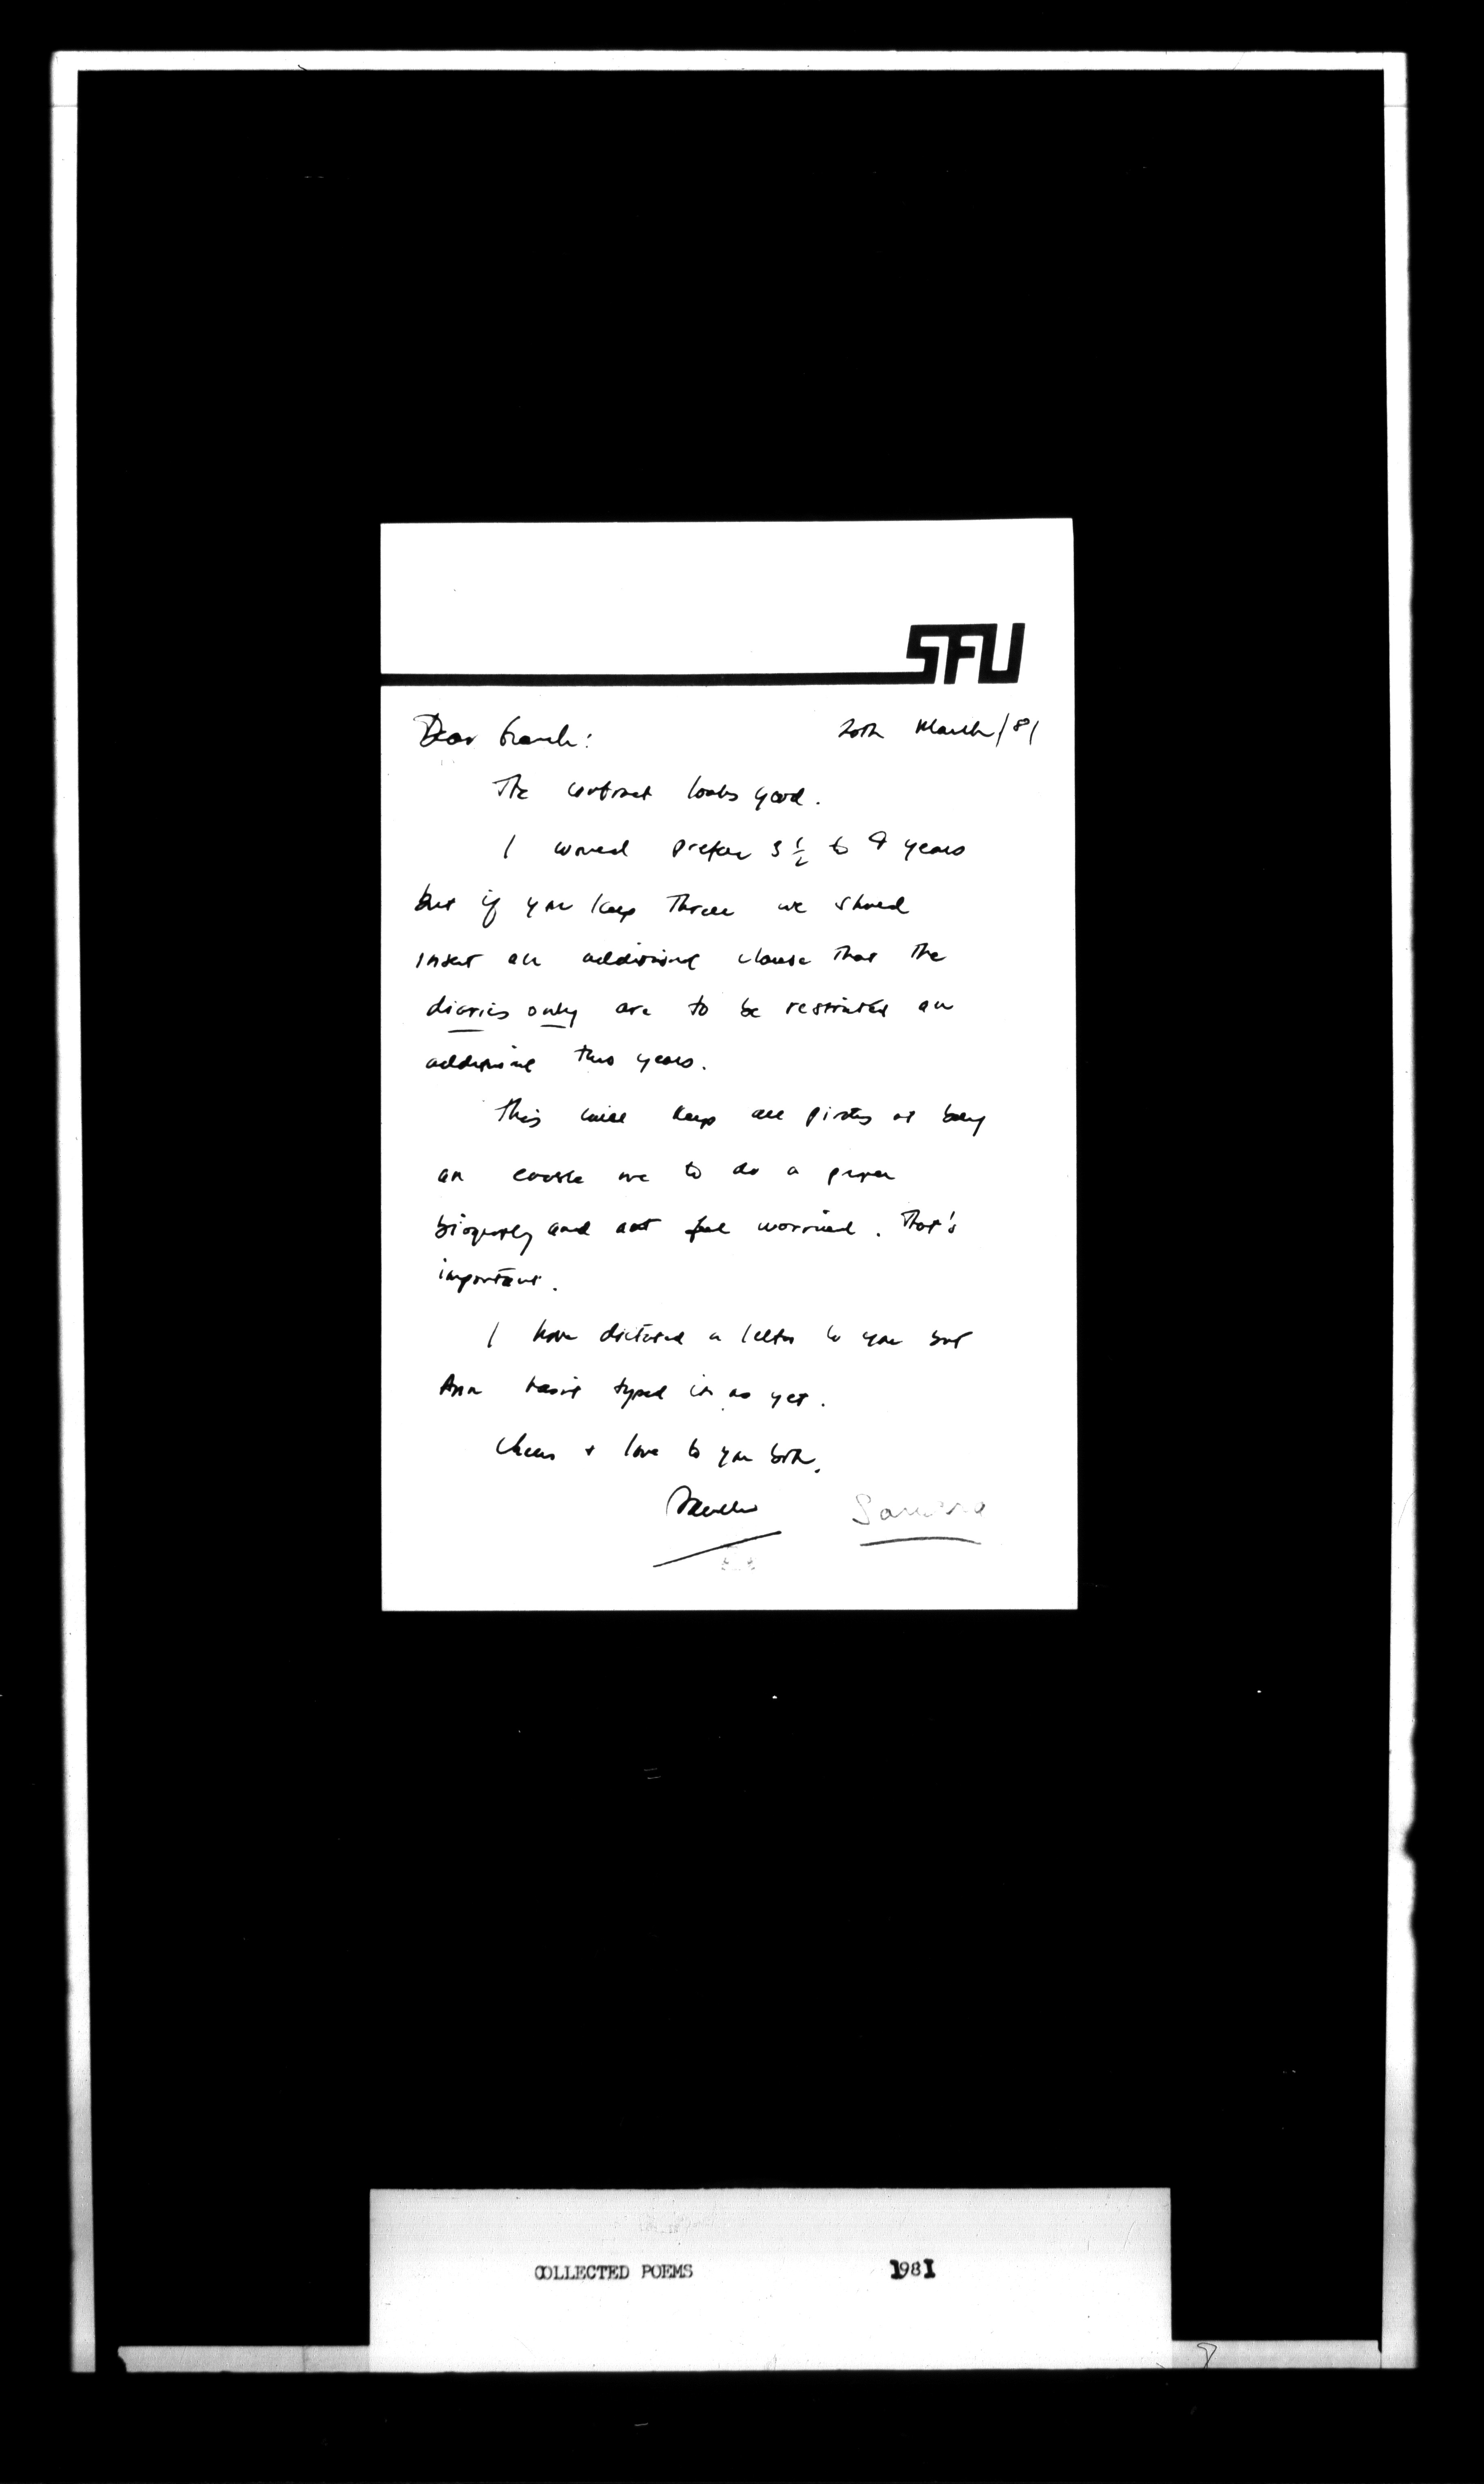 SFU
Dear Frank: 20th March/81
The contract looks good.
I would prefer 3 1/2 to 4 years
but if you keep three we should
insert an additional clause that the
diaries only are to be restricted an
additional two years.
This will keep all pirates at bay
an enable me to do a proper
biography and not feel worried. That's
important.
I have dictated a letter to you but
Ann hasn't typed it as yet.
Cheers + love to you both,
Sandra
COLLECTED POEMS 1981